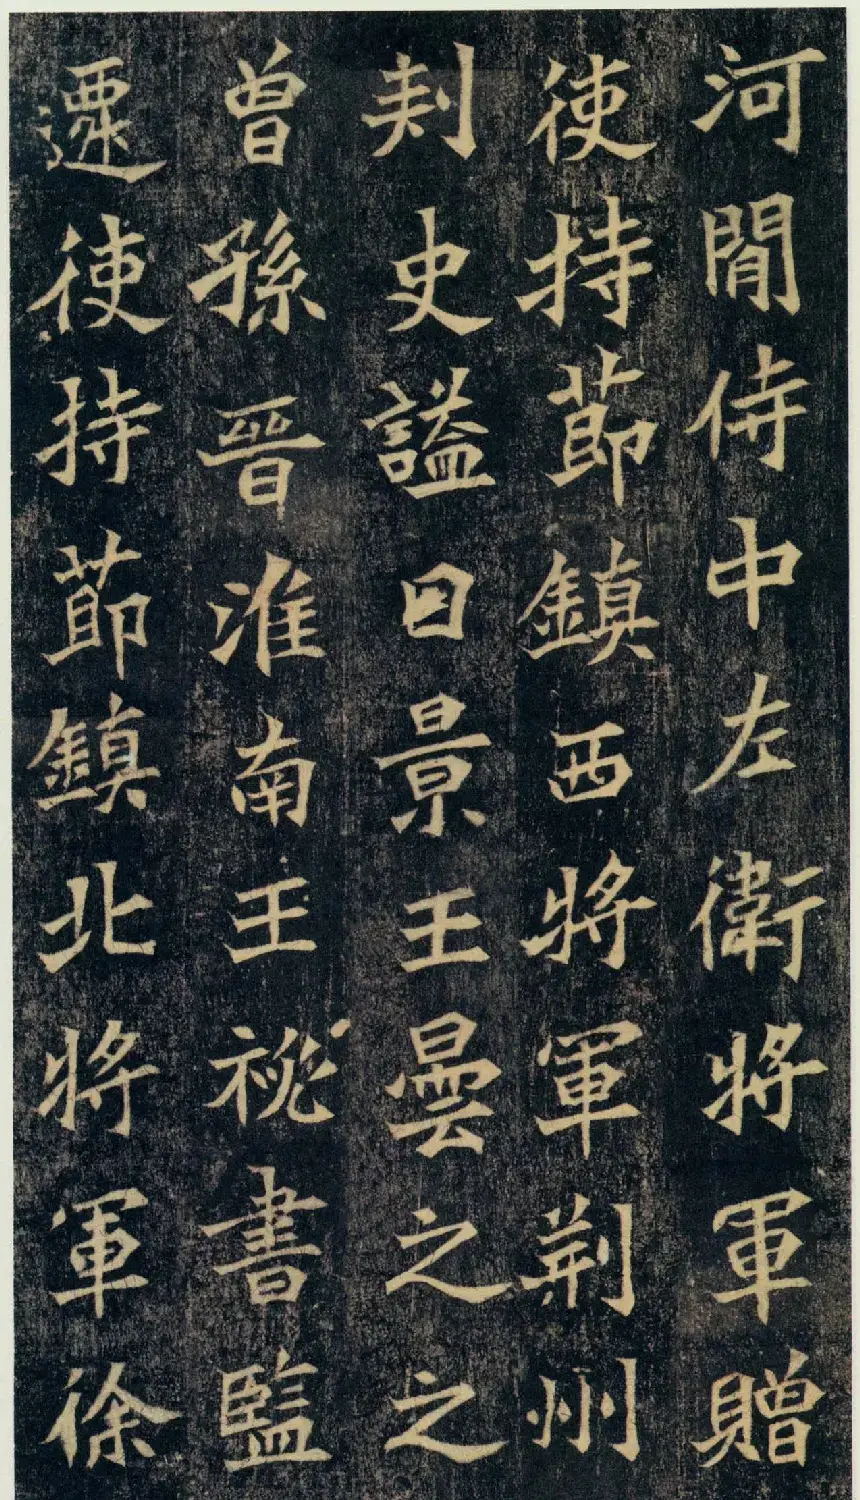 河間侍中左衛將軍贈
使持節鎮西將軍荊州
刾史諡曰景王曇之之
曾孫晉淮南王祕書監
遷使持節鎮北將軍徐